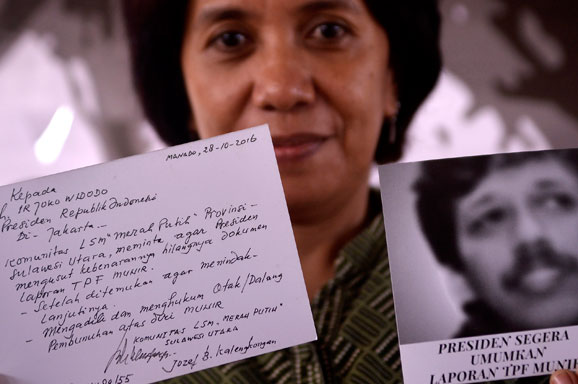 MANADO, 28-10-2016
Kepada
IR JOKO WIDODO
Presiden Republik Indonesia
Di - Jakarta -
Komunitas LSM "MERAH PUTIH" Provinsi -
Sulawesi Utara, meminta agar Presiden
mengusut kebenarannya hilangnya dokumen
Laporan TPF MUNIR.
- Setelah ditemukan agar menindak-
Lanjutinya.
- Mengadili dan menghukum Otak/Dalang
Pembunuhan atas diri MUNIR
KOMUNITAS LSM, "MERAH PUTIH"
SULAWESI UTARA
Jozef B. Kalengkongan
/55
PRESIDEN SEGERA
UMUMKAN
LAPORAN TPF MUNI